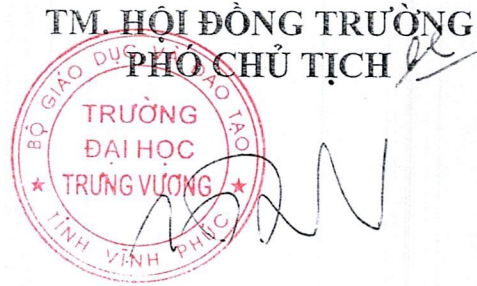 TM. HỘI ĐỒNG TRƯỜNG
PHÓ CHỦ TỊCH
BỘ GIÁO DỤC VÀ ĐÀO TẠO
TRƯỜNG
ĐẠI HỌC
TRƯNG VƯƠNG
★ TỈNH VĨNH PHÚC ★